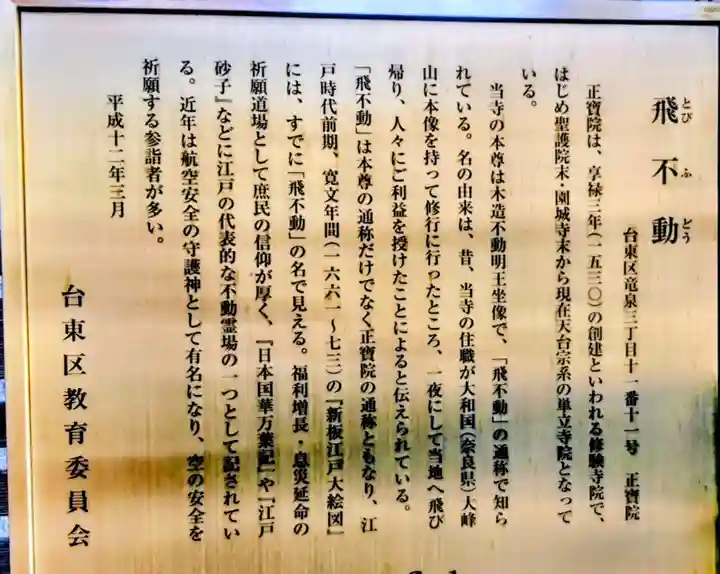 飛不動
とび ふ どう
台東区竜泉三丁目十一番十一号 正寶院
正寶院は、享禄三年(一五三〇)の創建といわれる修験寺院で、
はじめ聖護院末・園城寺末から現在天台宗系の単立寺院となって
いる。
当寺の本尊は木造不動明王坐像で、「飛不動」の通称で知ら
れている。名の由来は、昔、当寺の住職が大和国(奈良県)大峰
山に本像を持って修行に行ったところ、一夜にして当地へ飛び
帰り、人々にご利益を授けたことによると伝えられている。
「飛不動」は本尊の通称だけでなく正寶院の通称ともなり、江
戸時代前期、寛文年間(一六六一〜七三)の『新板江戸大絵図』
には、すでに「飛不動」の名で見える。福利増長・息災延命の
祈願道場として庶民の信仰が厚く、『日本国華万葉記』や『江戸
砂子』などに江戸の代表的な不動霊場の一つとして記されてい
る。近年は航空安全の守護神として有名になり、空の安全を
祈願する参詣者が多い。
平成十二年三月
台東区教育委員会